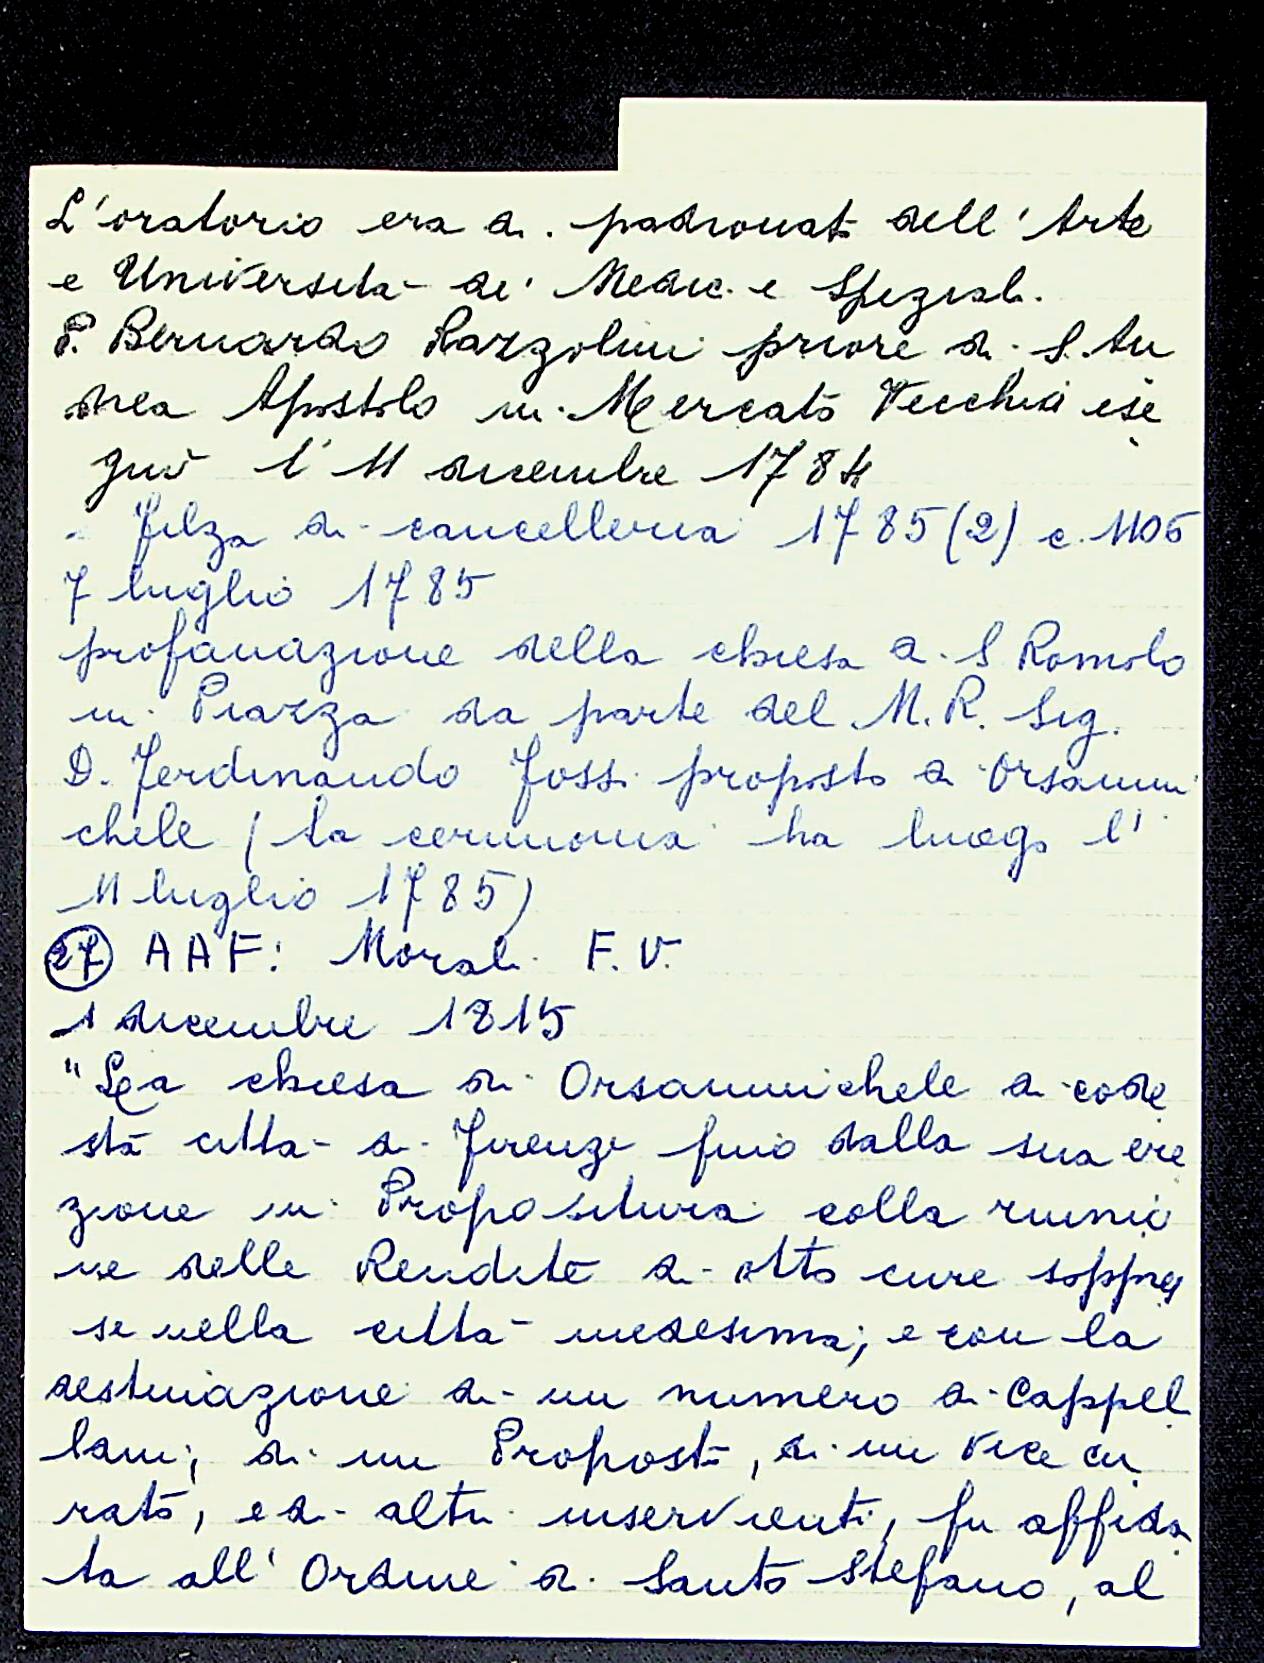 L'oratorio era di padronato dell'Arte
e Università de' Medici e Speziali.
P. Bernardo Razzolini priore di S. An
drea Apostolo in Mercato Vecchio ese
guì l'11 dicembre 1784
- Filza di cancelleria 1785 (2) c. 1106
7 luglio 1785
profanazione della chiesa di S Romolo
in Piazza da parte del M.R. Sig.
D. Ferdinando Fossi proposto di Orsanmi
chele (la cerimonia ha luogo l'
11 luglio 1785)
27 AAF: Morali F.V.
1 dicembre 1815
"La chiesa di Orsanmichele di code
sta città di Firenze fino dalla sua ere
zione in Propositura colla riunio
ne delle Rendite di otto cure soppres
se nella città medesima; e con la
destinazione di un numero di Cappel
lani; di un Proposto, di un Vice cu
rato, e di altri inservienti, fu affida
ta all'Ordine di Santo Stefano, al